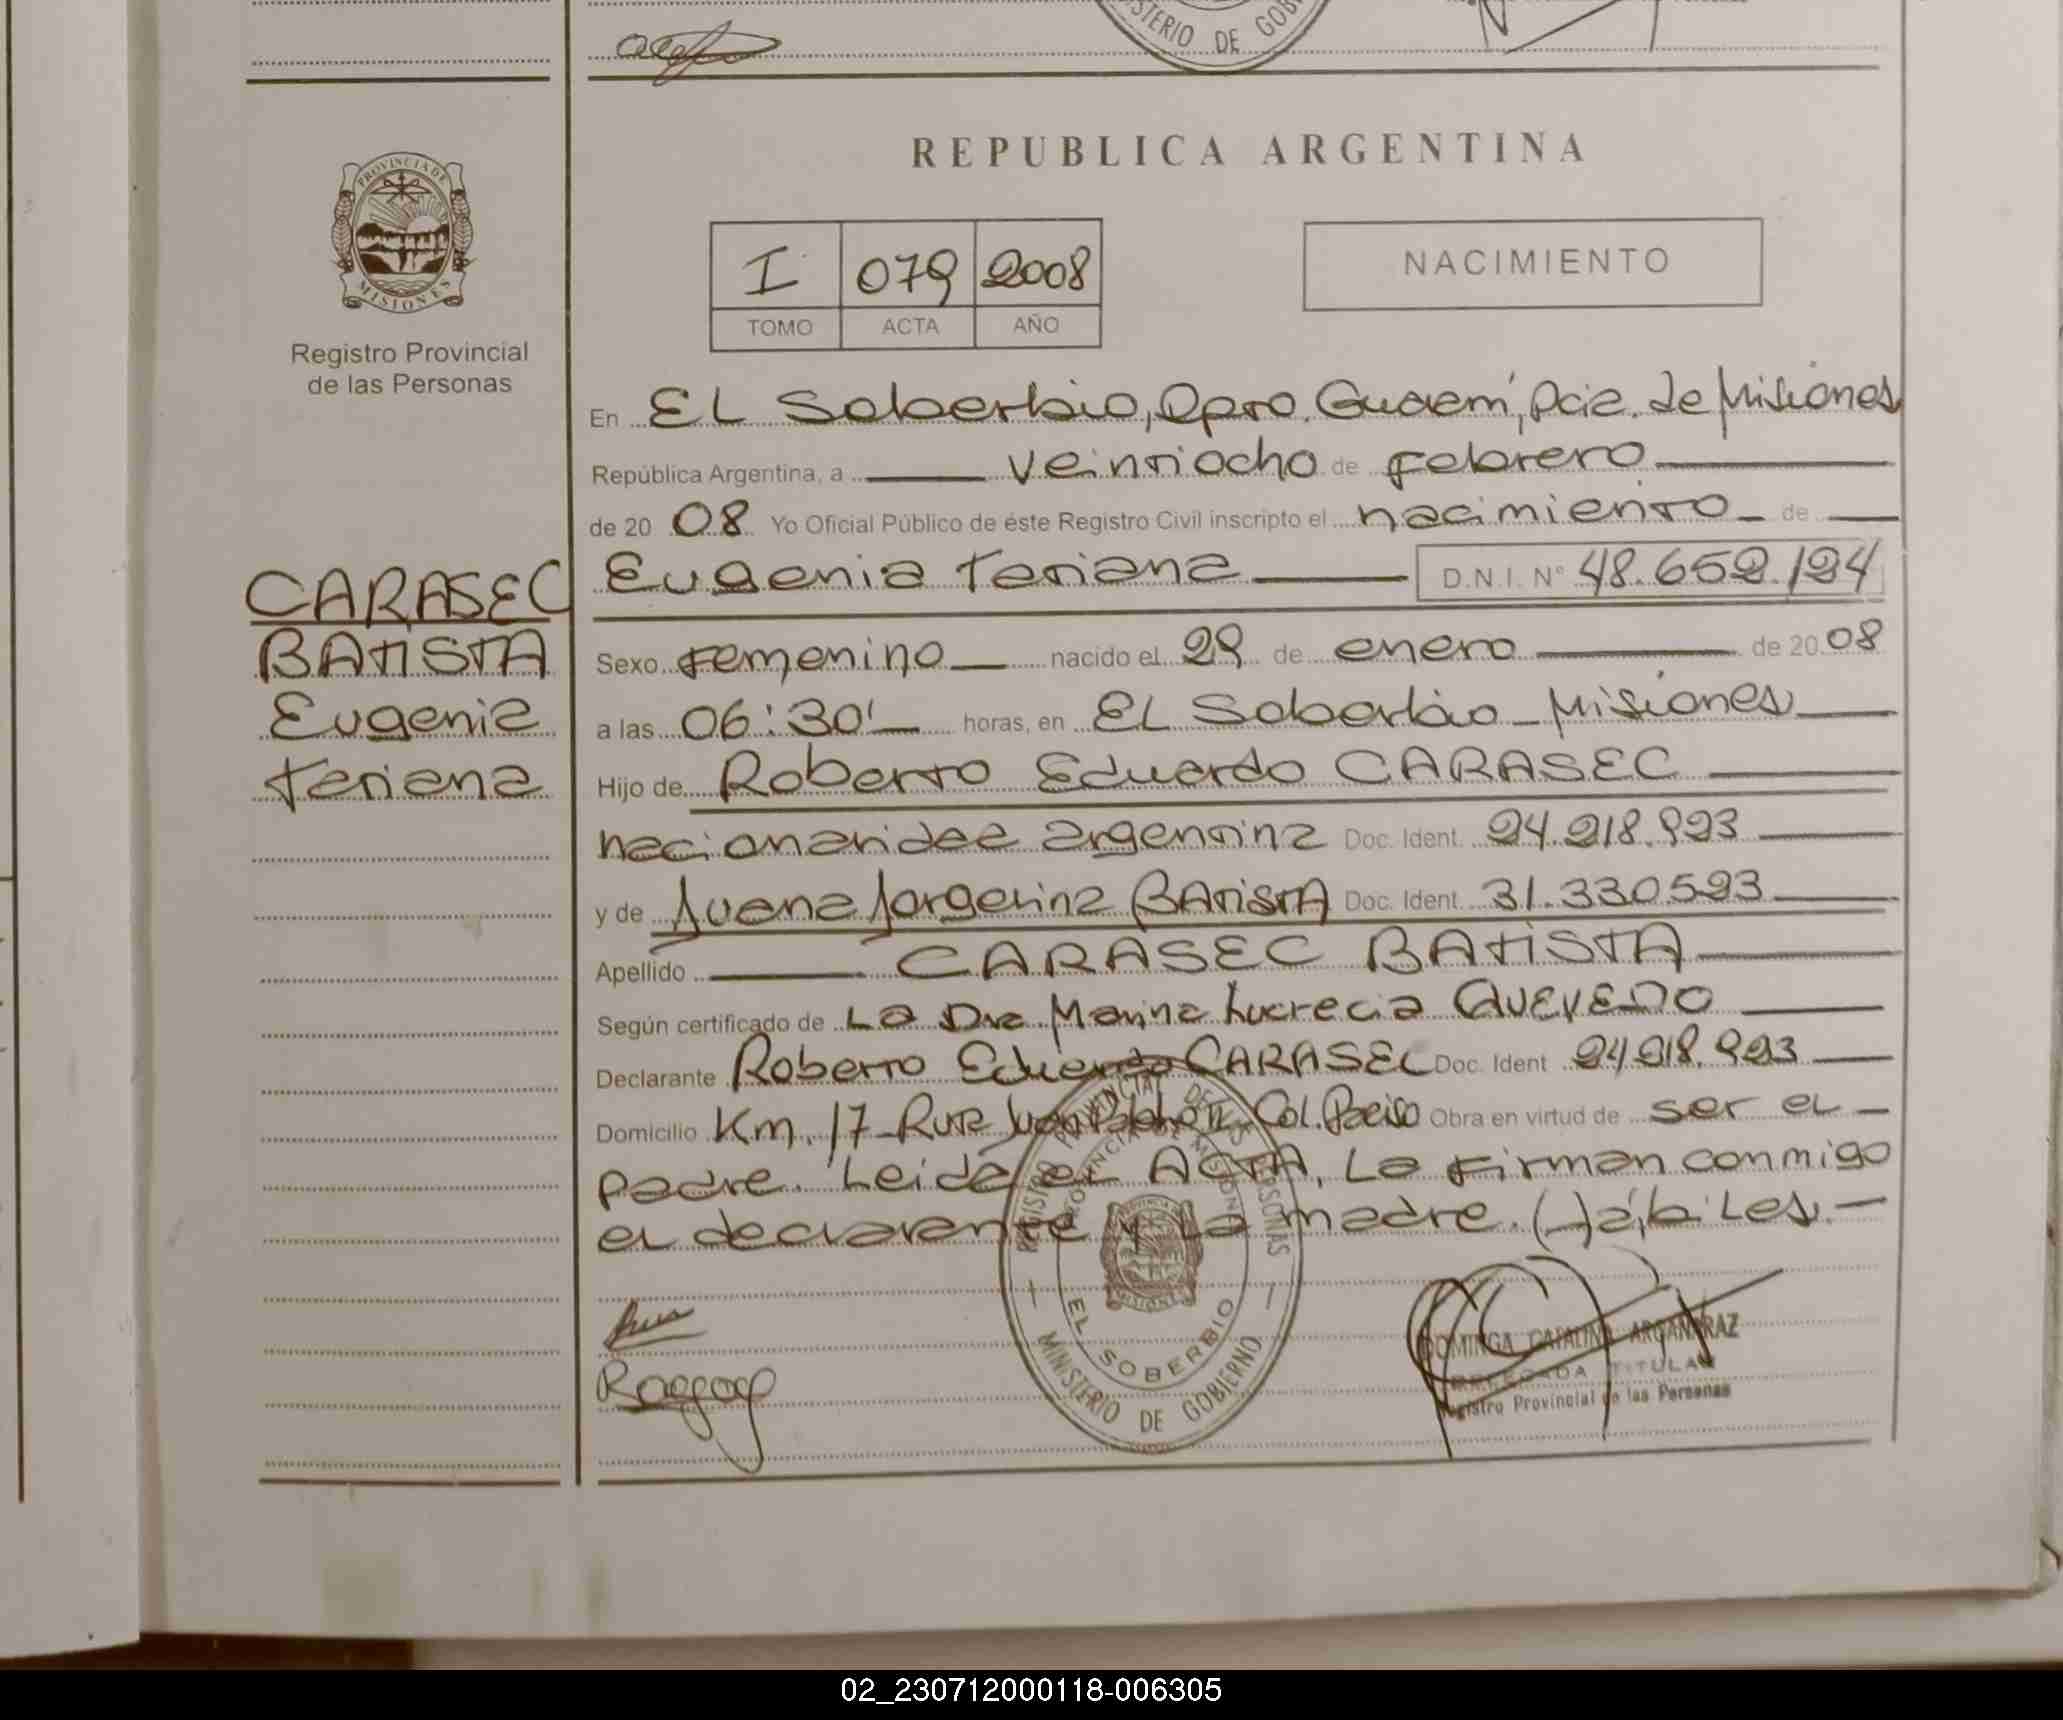 MINISTERIO DE GOBIERNO
REPUBLICA ARGENTINA
PROVINCIA DE
MISIONES
Registro Provincial
de las Personas
I 079 2008
TOMO ACTA AÑO
NACIMIENTO
En EL Soberbio, Dpto. Guaraní, Pcia. de Misiones
República Argentina, a veintiocho de febrero
de 20 08 Yo Oficial Público de éste Registro Civil inscripto el nacimiento de
Eugenia Tatiana D.N.I. N° 48.652.124
CARASEC
BATISTA
Eugenia
Tatiana
Sexo femenino nacido el 29 de enero de 20 08
a las 06:30' horas, en EL Soberbio - Misiones
Hijo de Roberto Eduardo CARASEC
nacionalidad argentina Doc. Ident. 24.218.923
y de Juana Jorgelina BATISTA Doc. Ident. 31.330.593
Apellido CARASEC BATISTA
Según certificado de La Dra Marina Lucrecia QUEVEDO
Declarante Roberto Eduardo CARASEC Doc. Ident 24.218.923
Domicilio Km. 17 Ruta Juan Col. Obra en virtud de ser el
padre. Leida el ACTA, La firman conmigo
el declarante y la madre. (-) a, bi Les.
REGISTRO PROVINCIAL DE LAS PERSONAS
PROVINCIA DE MISIONES
EL SOBERBIO
MINISTERIO DE GOBIERNO
DOMINGA CATALINA ARGAÑARAZ
DELEGADA TITULAR
Registro Provincial de las Personas
02_230712000118-006305